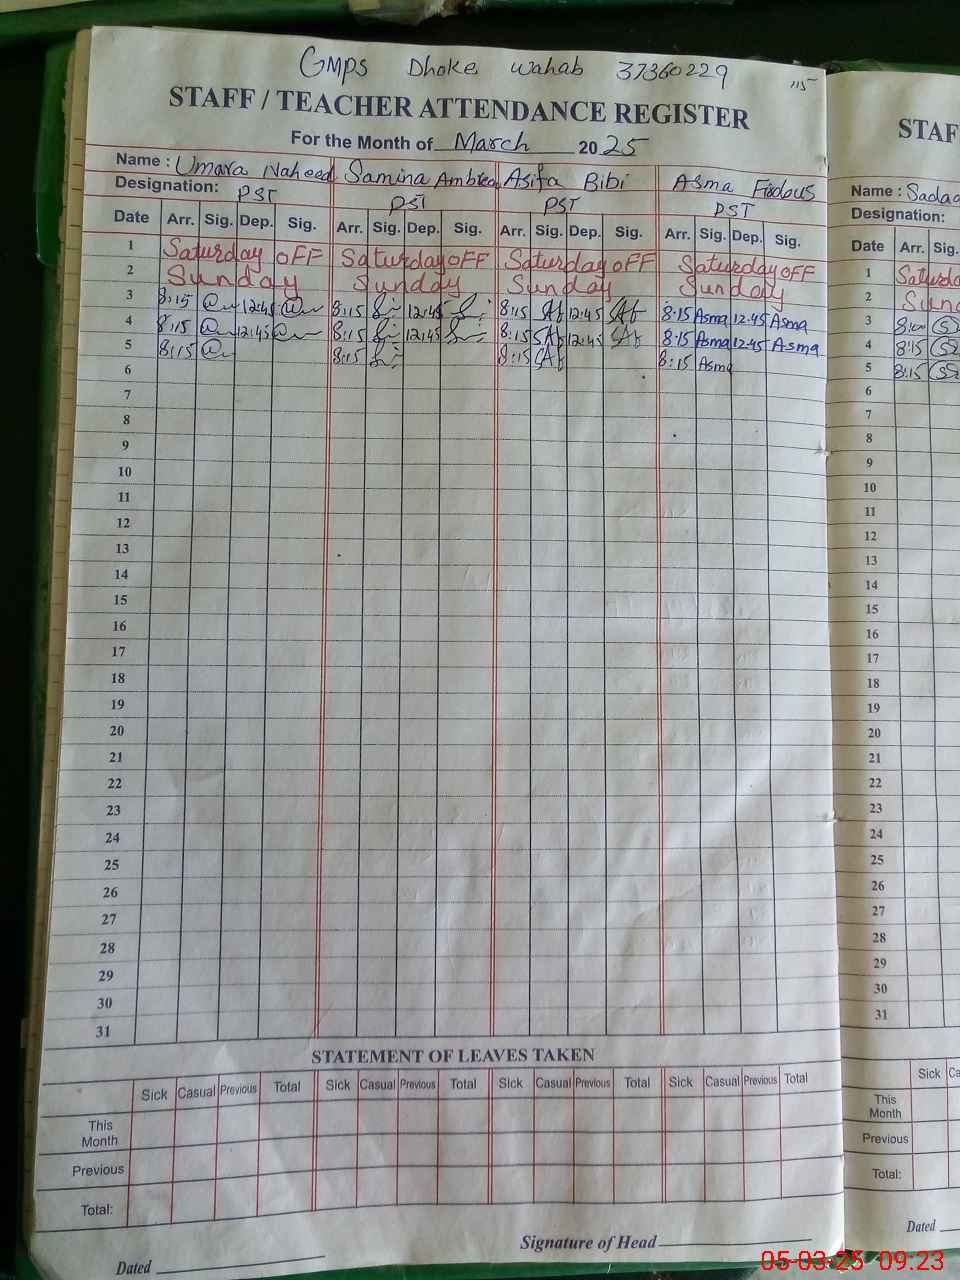 GMPS Dhoke Wahab 37360229
115
STAFF / TEACHER ATTENDANCE REGISTER
For the Month of March 2025
Name : Umara Naheed Samina Ambrea Asifa Bibi Asma Firdous
Designation: PST PST PST PST
Date Arr. Sig. Dep. Sig. Arr. Sig. Dep. Sig. Arr. Sig. Dep. Sig. Arr. Sig. Dep. Sig.
1 Saturday OFF Saturday OFF Saturday OFF Saturday OFF
2 Sunday Sunday Sunday Sunday
3 8:15 12:45 8:15 12:45 8:15 12:45 8:15 Asma 12.45 Asma
4 8:15 12:45 8:15 12:45 8:15 12:45 8:15 Asma 12.45 Asma
5 8:15 8:15 8:15 8:15 Asma
6
7
8
9
10
11
12
13
14
15
16
17
18
19
20
21
22
23
24
25
26
27
28
29
30
31
STATEMENT OF LEAVES TAKEN
Sick Casual Previous Total Sick Casual Previous Total Sick Casual Previous Total Sick Casual Previous Total
This
Month
Previous
Total:
Signature of Head
Dated
STAF
Name : Sadaq
Designation:
Date Arr. Sig.
1 Saturda
2 Sun
3
4 8:15
5 8:15
6
7
8
9
10
11
12
13
14
15
16
17
18
19
20
21
22
23
24
25
26
27
28
29
30
31
Sick Ca
This
Month
Previous
Total:
Dated
05-03-25 09:23